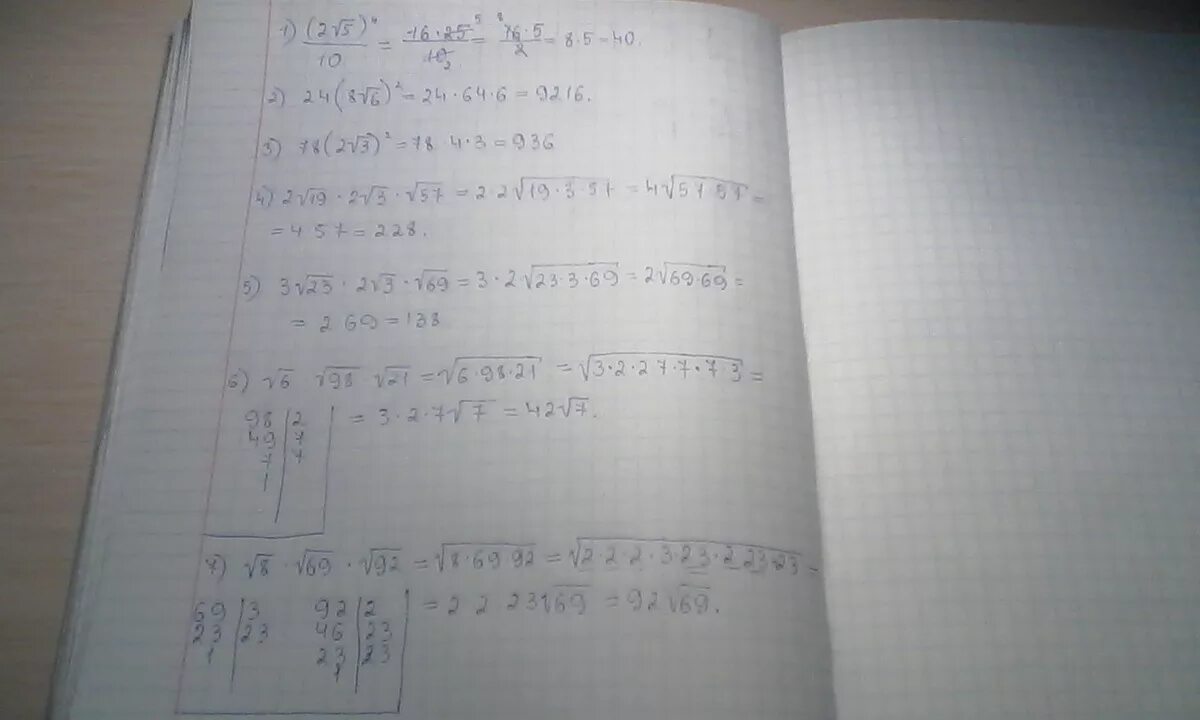 1) (2√5)⁴/10 = 16·25/10 = 16·5/2 = 8·5 = 40.
2) 24(8√6)² = 24·64·6 = 9216.
3) 78(2√3)² = 78 4·3 = 936
4) 2√19 · 2√3 · √57 = 2·2√19·3·57 = 4√57 57 =
= 4 57 = 228.
5) 3√23 · 2√3 · √69 = 3·2√23·3·69 = 2√69·69 =
= 2 69 = 138
6) √6 √98 √21 = √6·98·21 = √3·2·2 7·7·7·3 =
98 | 2 = 3·2·7√7 = 42√7.
49 | 7
7 | 7
1
7) √8 · √69 · √92 = √8·69 92 = √2·2·2·3·23·2 23·23 =
69 | 3 92 | 2 = 2 2 23√69 = 92√69.
23 | 23 46 | 23
1 23 | 23
1